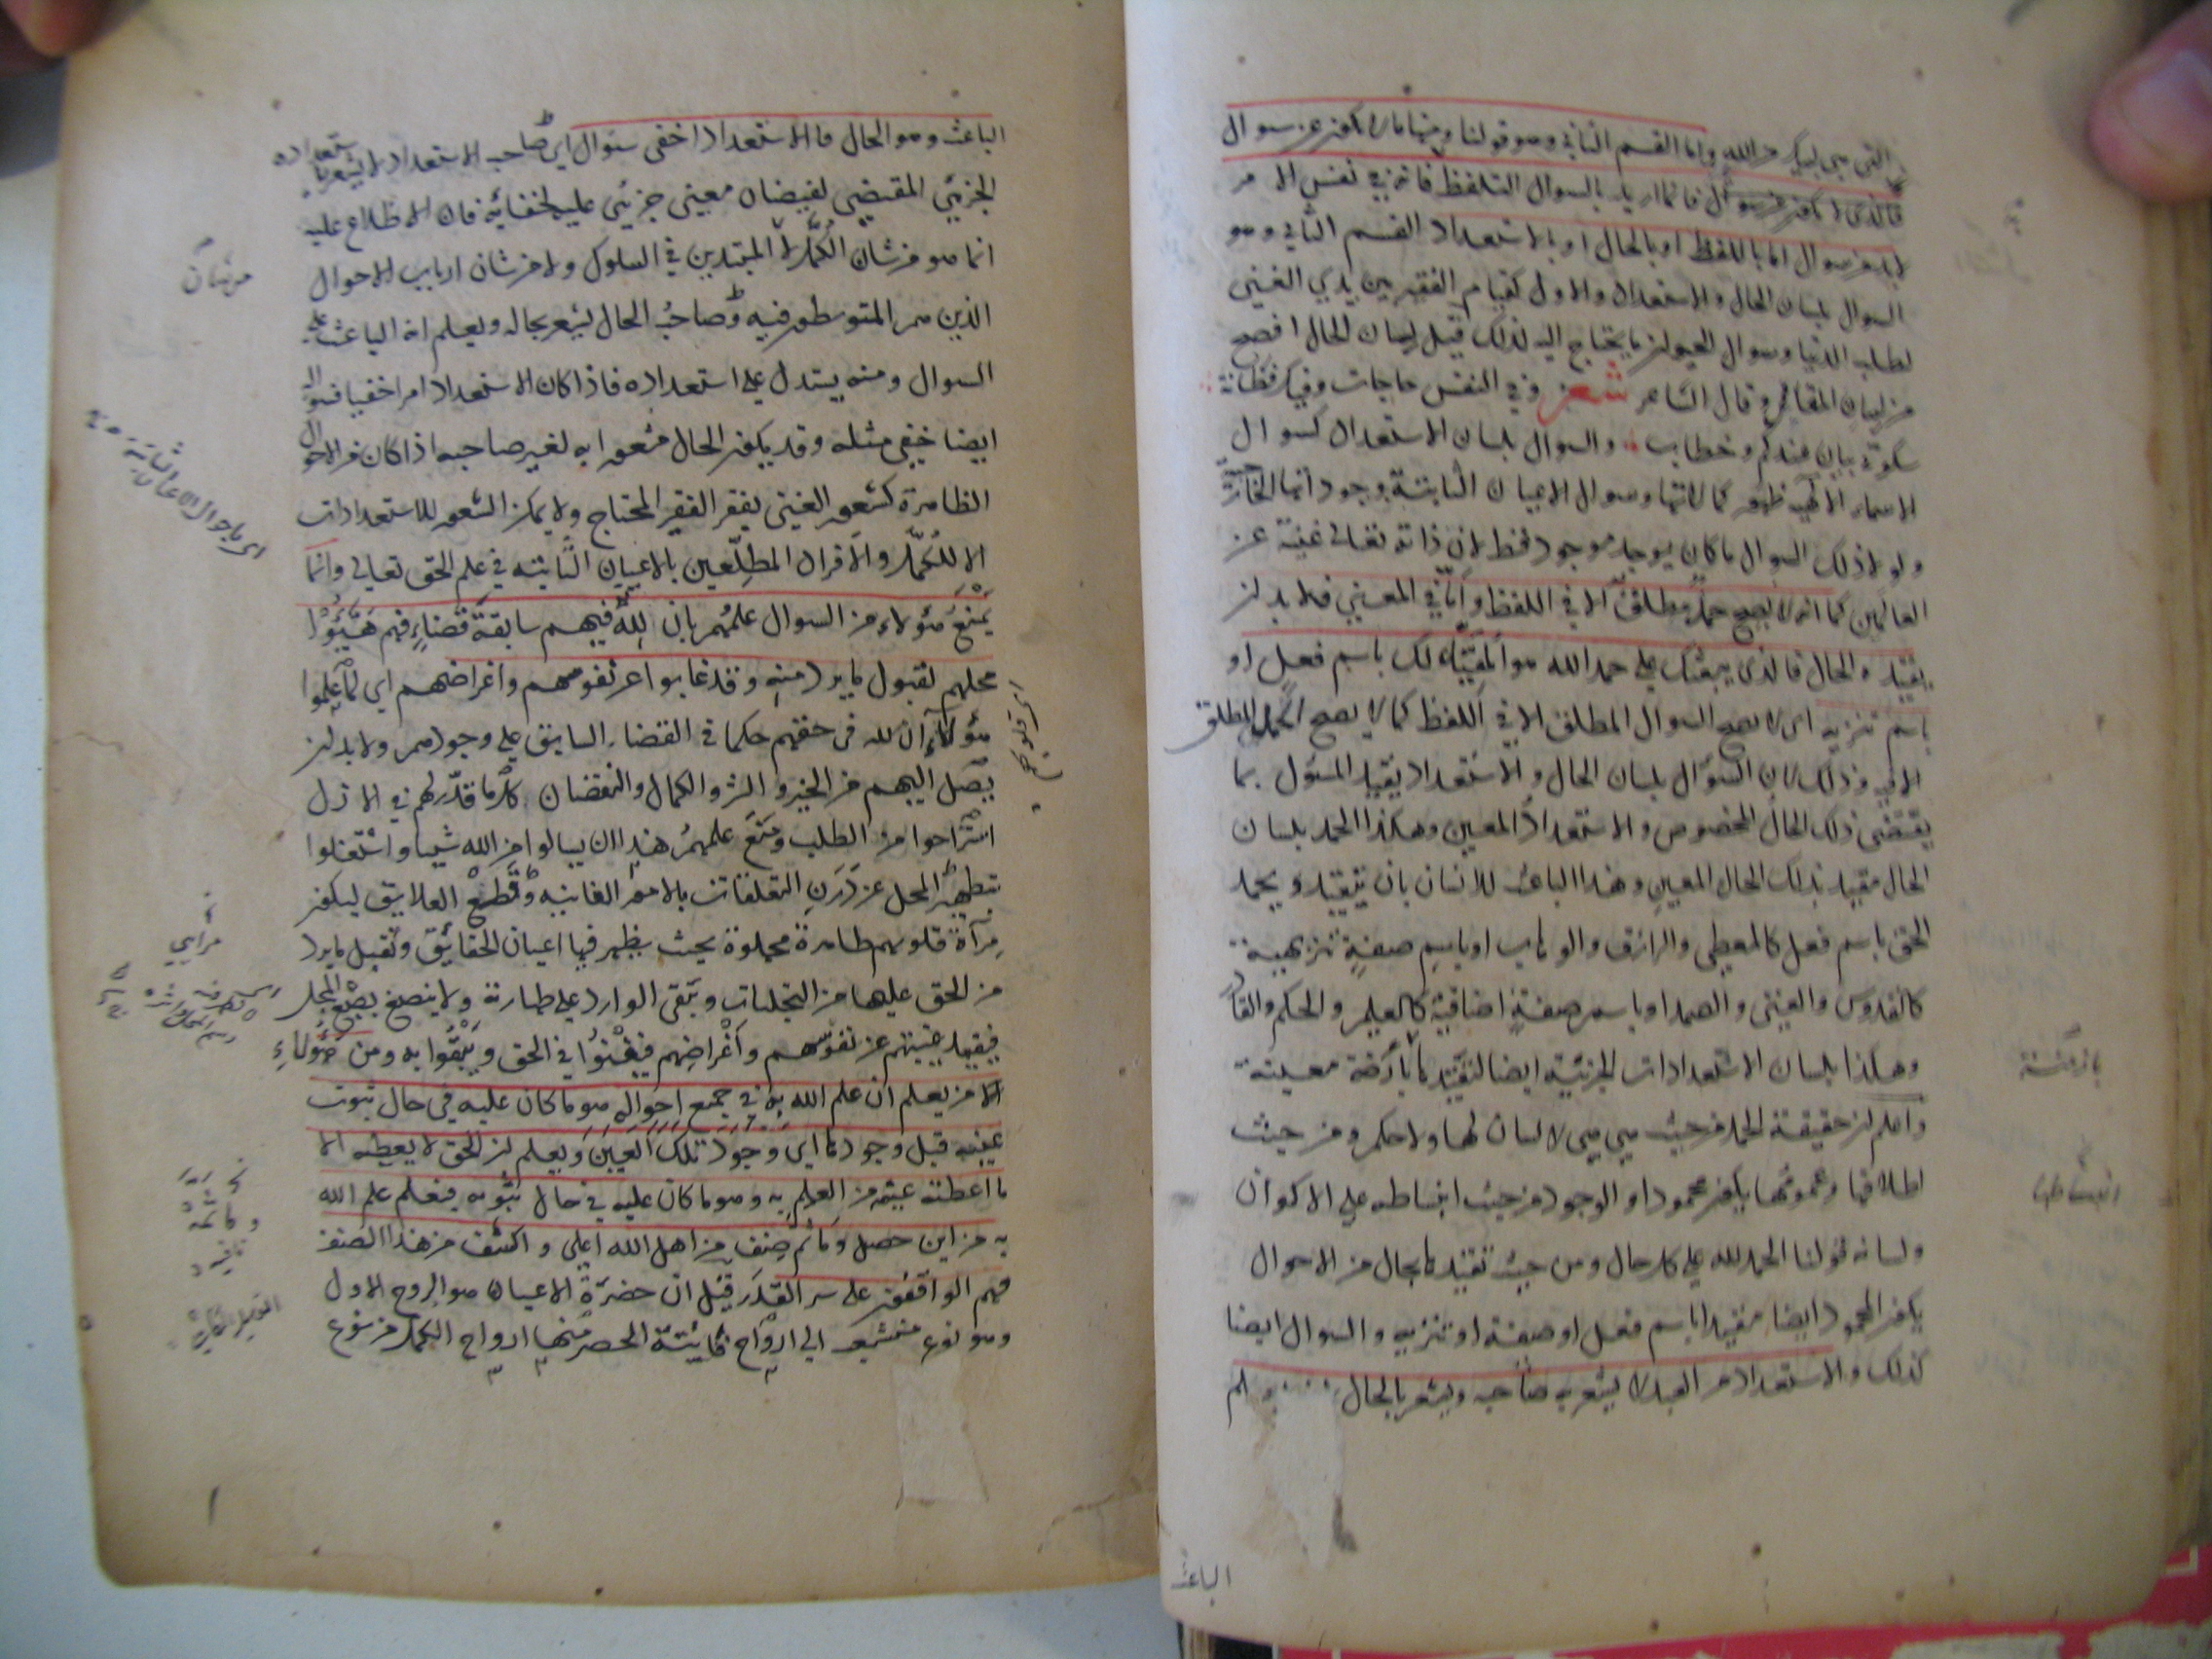 التي هي ليكر حرالله واما القسم الثاني وهو قولنا ومنها ما لا يكون عن سوال
فالذي لا يكون عن سوال فانما اريد بالسوال التلفظ فانه في نفس الامر
لابد من سوال اما باللفظ او بالحال او بالاستعداد القسم الثاني وهو
السوال بلسان الحال والاستعداد والاول كقيام الفقير بين يدي الغني
لطلب الدنيا وسوال الحيوان ما يحتاج اليه لذلك قيل لسان الحال افصح
من لسان المقال وقال الشاعر شعر وفي النفس حاجات وفيك فطانة
سكوتي بيان عندكم وخطاب والسوال بلسان الاستعداد كسوال
الاسماء الالهية ظهور كمالاتها وسوال الاعيان الثابتة وجوداتها الخارجية
ولولا ذلك السوال ما كان يوجد موجود قط لان ذاته تعالى غنية عن
العالمين كما انه لا يصح حمد مطلق الا في اللفظ واما في المعنى فلا بد ان
يقيده الحال فالذي يبعثك على حمد الله هو المقيد لك باسم فعل او
باسم تنزيه اي لا يصح السوال المطلق الا في اللفظ كما لا يصح الحمد المطلق
الا فيه وذلك لان السؤال بلسان الحال والاستعداد يقيد المسئول بما
يقتضى ذلك الحال المخصوص والاستعداد المعين وهكذا الحمد بلسان
الحال مقيد بذلك الحال المعين وهذا الباعث للانسان بان يتقيد ويحمد
الحق باسم فعل كالمعطي والرازق والوهاب او باسم صفة تنزيهية
كالقدوس والغنى والصمد او باسم صفة اضافية كالعليم والحكيم والقادر
وهكذا بلسان الاستعدادات الجزئية ايضا لتقيدها بازمنة معينة
واعلم ان حقيقة الحمد من حيث هي هي لا لسان لها ولا حكم ومن حيث
اطلاقها وعمومها يكون محمودا والوجود من حيث انبساطه على الاكوان
ولسانه قولنا الحمد لله على كل حال ومن حيث تقيدها بحال من الاحوال
يكون المحمود ايضا مقيدا باسم فعل او صفة او تنزيه والسوال ايضا
كذلك والاستعداد من العبد لا يشعر به صاحبه ويشعر بالحال
بازمنة
انبساطه
الباعث
الباعث وهو الحال فالاستعداد اخفى سؤال اي صاحب الاستعداد لا يشعر باستعداده
الجزئي المقتضي لفيضان معنى جزئي عليه لخفائه فان الاطلاع عليه
انما هو من شان الكمل لا المبتدين في السلوك ولا من شان ارباب الاحوال
الذين هم المتوسطون فيه وصاحب الحال يشعر بحاله ويعلم انه الباعث على
السوال ومنه يستدل على استعداده فاذا كان الاستعداد امرا خفيا فسواله
ايضا خفي مثله وقد يكون الحال مشعورا به لغير صاحبه اذا كان من الاحوال
الظاهرة كشعور الغني بفقر الفقير المحتاج ولا يمكن الشعور للاستعدادات
الا للكمل والافراد المطلعين بالاعيان الثابتة في علم الحق تعالى وانما
يمنع هؤلاء من السوال علمهم بان لله فيهم سابقة قضاء فهم هيّئوا
محلهم لقبول ما يرد منه وقد غابوا عن نفوسهم واغراضهم اي لما علموا
هؤلاء ان لله في حقهم حكما في القضاء السابق على وجودهم ولا بد ان
يصل اليهم من الخير والشر والكمال والنقصان كل ما قدر لهم في الازل
استراحوا من الطلب ومنع علمهم هذا ان يسالوا من الله شيئا واشتغلوا
بتطهير المحل عن درن التعلقات بالامور الفانية وقطع العلايق ليكون
مرآة قلوبهم طاهرة مجلوة بحيث يظهر فيها اعيان الحقائق وتقبل ما يرد
من الحق عليها من التجليات ويبقى الوارد على طهارته ولا ينصبغ بصبغ المحل
فيقيد غيبتهم عن نفوسهم واغراضهم فيفنوا في الحق ويبقوا به ومن هؤلاء
الا من يعلم ان علم الله به في جميع احواله هو ما كان عليه في حال ثبوت
عينه قبل وجودها اي وجود تلك العين ويعلم ان الحق لا يعطيه الا
ما اعطته عينه من العلم به وهو ما كان عليه في حال ثبوته فيعلم علم الله
به من اين حصل وما ثم صنف من اهل الله اعلى واكشف من هذا الصنف
فهم الواقفون على سر القدر قيل ان حضرة الاعيان هو الروح الاول
وهو نوع متشعب الى ارواح فايتة الحصر منها ارواح الكمل من نوع
من شان
اي باحوال الاعيان الثابتة